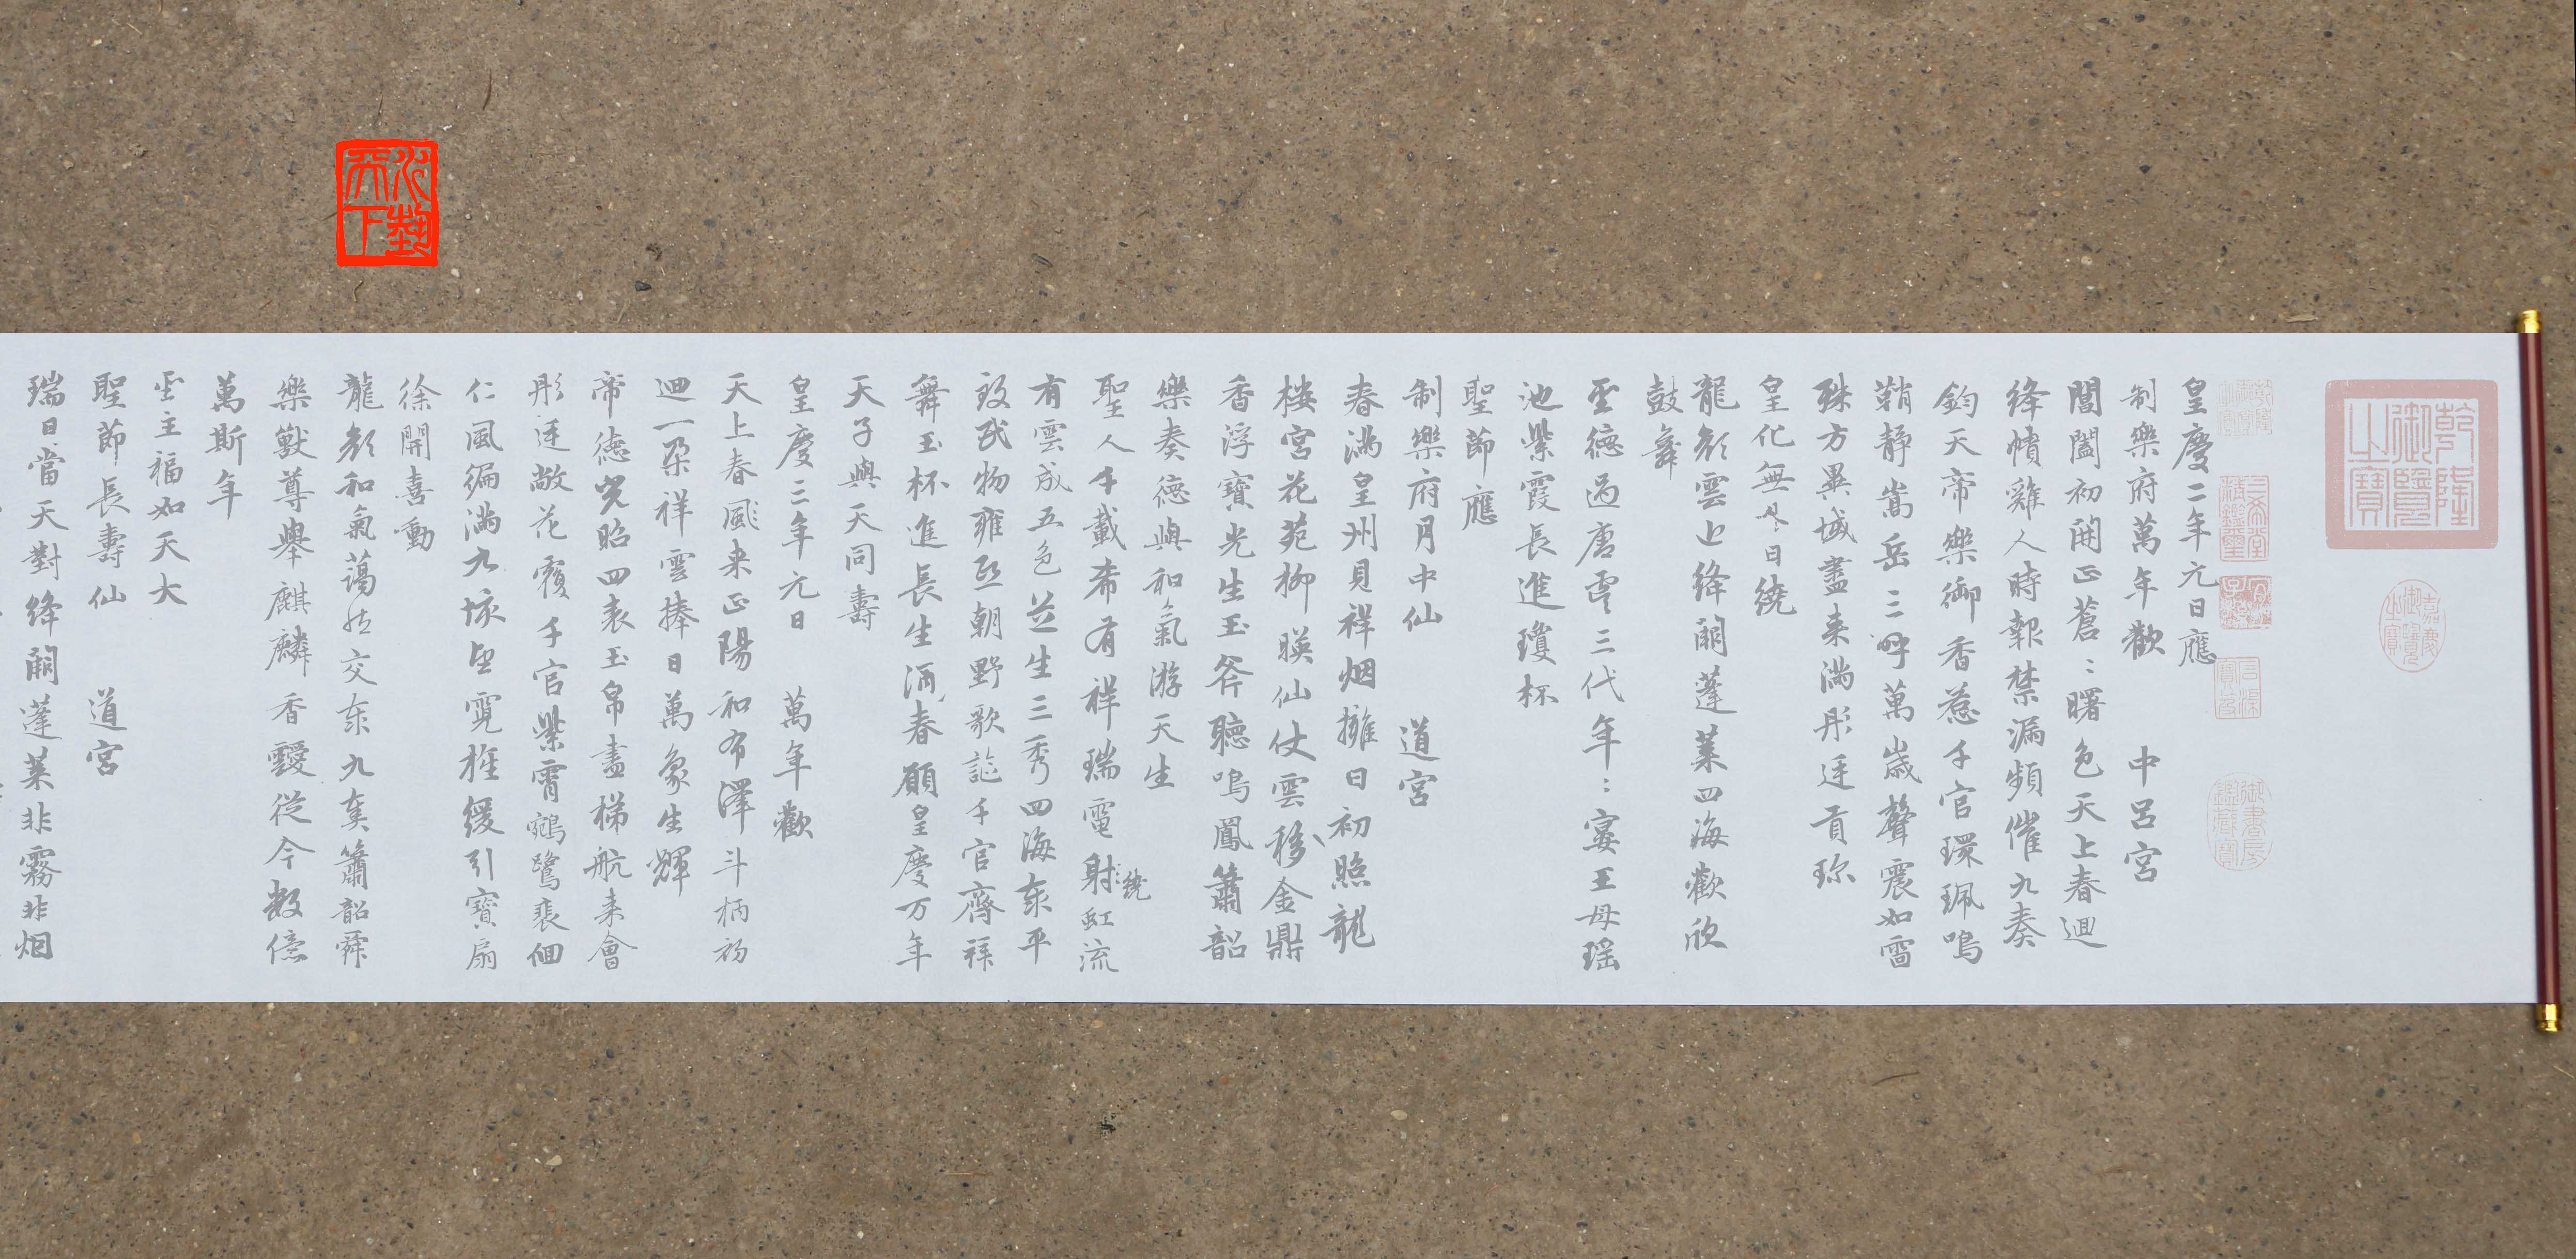 皇慶二年元日應
制樂府萬年歡　中呂宮
閶闔初開正蒼〻曙色天上春迴
絳幘雞人時報禁漏頻催九奏
鈞天帝樂御香惹千官環珮鳴
鞘靜嵩岳三呼萬歲聲震如雷
殊方異域盡來滿彤廷貢珎
皇化無外日繞
龍顏雲上絳闕蓬萊四海歡欣
鼓舞
聖德過唐虞三代年〻宴王母瑶
池紫霞長進瓊杯
聖節應
制樂府月中仙　道宮
春滿皇州見祥烟擁日初照龍
樓宮花苑柳暎仙仗雲移金鼎
香浮寶光生玉斧聽鳴鳳簫韶
樂奏德與和氣游天生
聖人千載希有祥瑞電射虹流
繞
有雲成五色並生三秀四海泰平
致民物雍熙朝野歌謳千官齊拜
舞玉杯進長生酒春願皇慶万年
天子與天同壽
皇慶三年元日　萬年歡
天上春風来正陽和布澤斗柄初
迴一朶祥雲捧日萬象生輝
帝德光昭四表玉帛盡梯航来會
彤廷敞花覆千官紫霄鵷鷺裴佪
仁風徧滿九垓望霓旌緩引寶扇
徐開喜動
龍顏和氣藹然交泰九奏簫韶舜
樂獸尊舉麒麟香靉從今數億
萬斯年
聖主福如天大
聖節長壽仙　道宮
瑞日當天對絳闕蓬萊非霧非烟
乾隆御覽之寶
嘉慶御覽之寶
三希堂精鑑璽
宜子孫
石渠寶笈
御書房鑑藏寶
天下